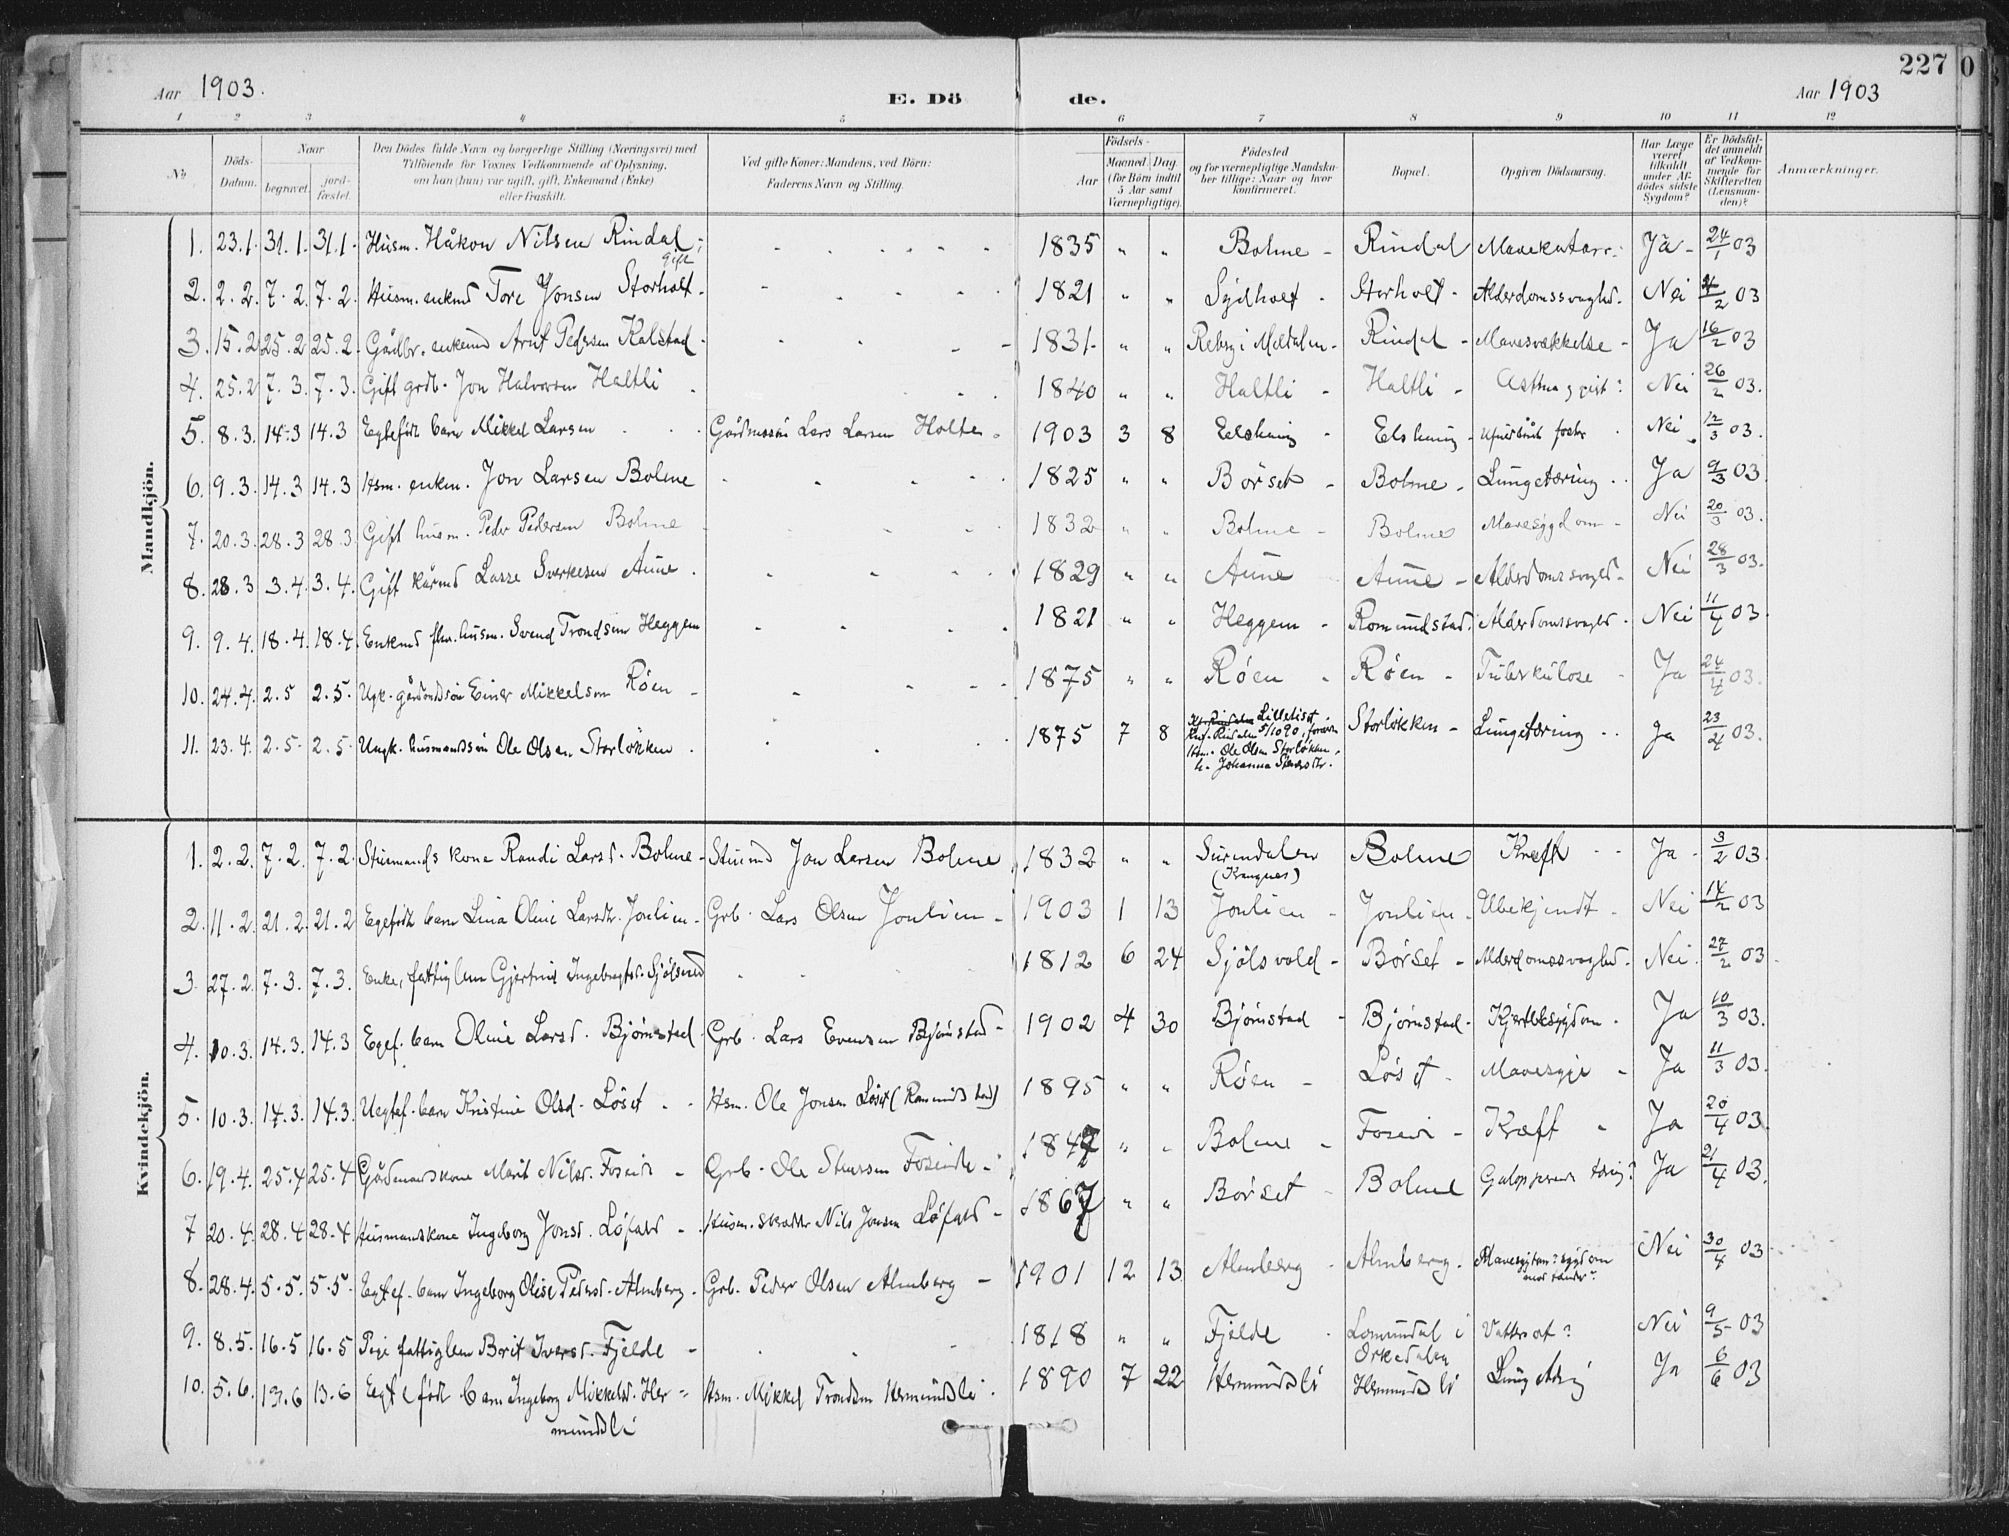 227
Aar 1903.
E. Dö de.
Aar 1903
1 2 3 4 5 6 7 8 9 10 11 12
No
Döds-Datum.
Naar begravet. jord-fæstet.
Den Dödes fulde Navn og borgerlige Stilling (Næringsvei) med
Tilföiende for Voxnes Vedkommende af Oplysning,
om han (hun) var ugift, gift, Enkemand (Enke)
eller fraskilt.
Ved gifte Koner: Mandens, ved Börn:
Faderens Navn og Stilling.
Födsels-
Aar
Maaned. Dag.
(for Börn indtil 5 Aar samt Værnepligtige).
Födested
og for værnepligtige Mandskaber tillige: Naar og hvor konfirmeret.
Bopæl.
Opgiven Dödsaarsag.
Har Læge været tilkaldt under Afdödes sidste Sygdom?
Er Dödsfaldet anmeldt af Vedkommende for Skifteretten (Lensmanden)?
Anmærkninger.
Mandkjön.
1. 23.1. 31.1. 31.1. Husm. Håkon Nilsen Rindal, gift 1835 " " Bolme - Rindal Mavekatarr. Ja - 24/1 03
2. 2.2. 7.2. 7.2. Husm. enkmd Tore Jonsen Storholt. 1821 " " Sydholt - Storholt - Alderdomssvaghd. Nei 4/2 03
3. 15.2. 25.2 25.2. Gårdbr. enkemd Arnt Pedersen Kalstad. 1831 " " Rebsg i Meldalen - Rindal - Mavesvækkelse - Ja 16/2 03
4. 25.2 7.3. 7.3. Gift grdb. Jon Halvorsen Haltli 1840 " " Haltli - Haltli - Asthma, gigt? Nei 26/2 03.
5. 8.3. 14.3 14.3 Egtefødt barn Mikkel Larsen Gårdmssøn Lars Larsen Holte. 1903 3 8 Elshaug - Elshaug - Ufuldbårt foster Nei 12/3 03.
6. 9.3. 14.3 14.3 Hsm. enkm. Jon Larsen Bolme 1825 " " Børset - Bolme - Lungetæring Ja 9/3 03.
7. 20.3. 28.3 28.3 Gift husm. Peder Pedersen Bolme 1832 " " Bolme - Bolme Mavesygdom Nei 20/3 03.
8. 28.3 3.4. 3.4. Gift kårmd Lasse Sverkesen Aune. 1829 " " Aune Aune - Alderdomssvaghd. Nei 28/3 03.
9. 9.4. 18.4. 18.4. Enkmd fhv. husm. Svend Trondsen Heggem 1821 " " Heggem - Romundstad. Alderdomssvaghd. Nei 11/4 03.
10. 24.4. 2.5 2.5. Ugk. gårdmdssøn Einar Mikkelsen Røen 1875 " " Røen - Røen - Tuberkulose Ja 24/4 03.
11. 23.4. 2.5. 2.5. Ungk. husmandssøn Ole Olsen Storløkken. 1875 7 8 Lillelist Storløkken - Lungetæring Ja 23/4 03.
Knf. Rindalen 5/10 90, foræld.
Hsm. Ole Olsen Storløkken
h. Johanna
Kvindekjön.
1. 2.2. 7.2. 7.2. kone Randi Larsd. Bolme - Jon Larsen Bolme 1832 " " Surendalen (Krangnes) Bolme Kræft Ja - 3/2 03.
2. 11.2. 21.2. 21.2 Egtefødt barn Lina Oline Larsdtr. Jonlien - Grb. Lars Olsen Jonlien - 1903 1 13 Jonlien - Jonlien - Ubekjendt - Nei 14/2 03
3. 27.2. 7.3. 7.3. Enke, fattiglem Gjertrud Ingebrigtsd. Sjølsvold 1812 6 24 Sjølsvold - Børset - Alderdomssvaghed. Nei. 27/2 03
4. 10.3. 14.3. 14.3 Egtef. barn Oline Larsd. Bjørnstad Grb. Lars Evensen Bjørnstad - 1902 4 30 Bjørnstad - Bjørnstad - Kjertelsygdom. Ja 10/3 03.
5. 10.3. 14.3. 14.3. Uegtef. barn Kristine Olsd. Løset Hsm. Ole Jonsen Løset (Romundstad) 1895 " " Røen - Løset Mavesyge - Ja 11/3 03.
6. 19.4. 25.4 25.4 Gårdmandskone Marit Nilsd. Foseide - Grb. Ole Foseide - 1847 " " Bolme - Foseide - Kræft Ja 20/4 03.
7 20.4. 28.4 28.4 Husmandskone Ingeborg Jonsd. Løfald - Husm. skredder Nils Jonsen Løfald - 1867 " " Børset - Bolme Galopperende tæring? Ja 21/4 03.
8. 28.4. 5.5. 5.5. Egtef. barn Ingeborg Olise Pedersd. Almberg. Grb. Peder Olsen Almberg - 1901 12 13 Almberg - Almberg. Mavesygdom? sygdom mod tænder? Nei 30/4 03
9. 8.5. 16.5 16.5 Pige fattiglem Berit Iversd. Fjelde - 1818 " " Fjelde Lomundal i Orkedalen Vattersot? Nei 9/5 03
10. 5.6. 13.6 13.6 Egtefødt barn Ingeborg Mikkelsd. Her= Hsm. Mikkel Trondsen Hermundsli. 1890 7 22 Hermundsli Hermundsli Lungetæring Ja 6/6 03
mundsli